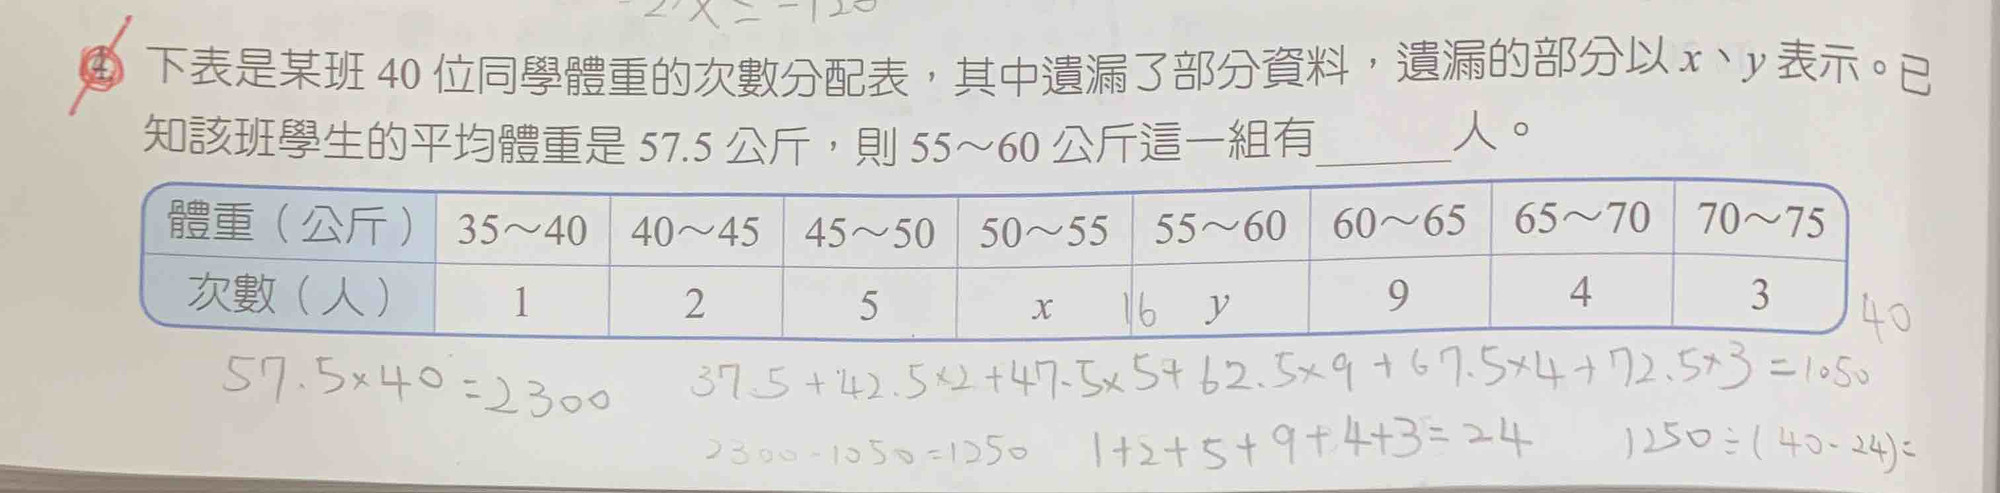 2x=-120
4 下表是某班 40 位同學體重的次數分配表，其中遺漏了部分資料，遺漏的部分以 x、y 表示。已
知該班學生的平均體重是 57.5 公斤，則 55～60 公斤這一組有______人。
體重（公斤） 35～40 40～45 45～50 50～55 55～60 60～65 65～70 70～75
次數（人） 1 2 5 x 16 y 9 4 3 40
57.5×40=2300 37.5+42.5×2+47.5×5+62.5×9+67.5×4+72.5×3=1050
2300-1050=1250 1+2+5+9+4+3=24 1250÷(40-24)=